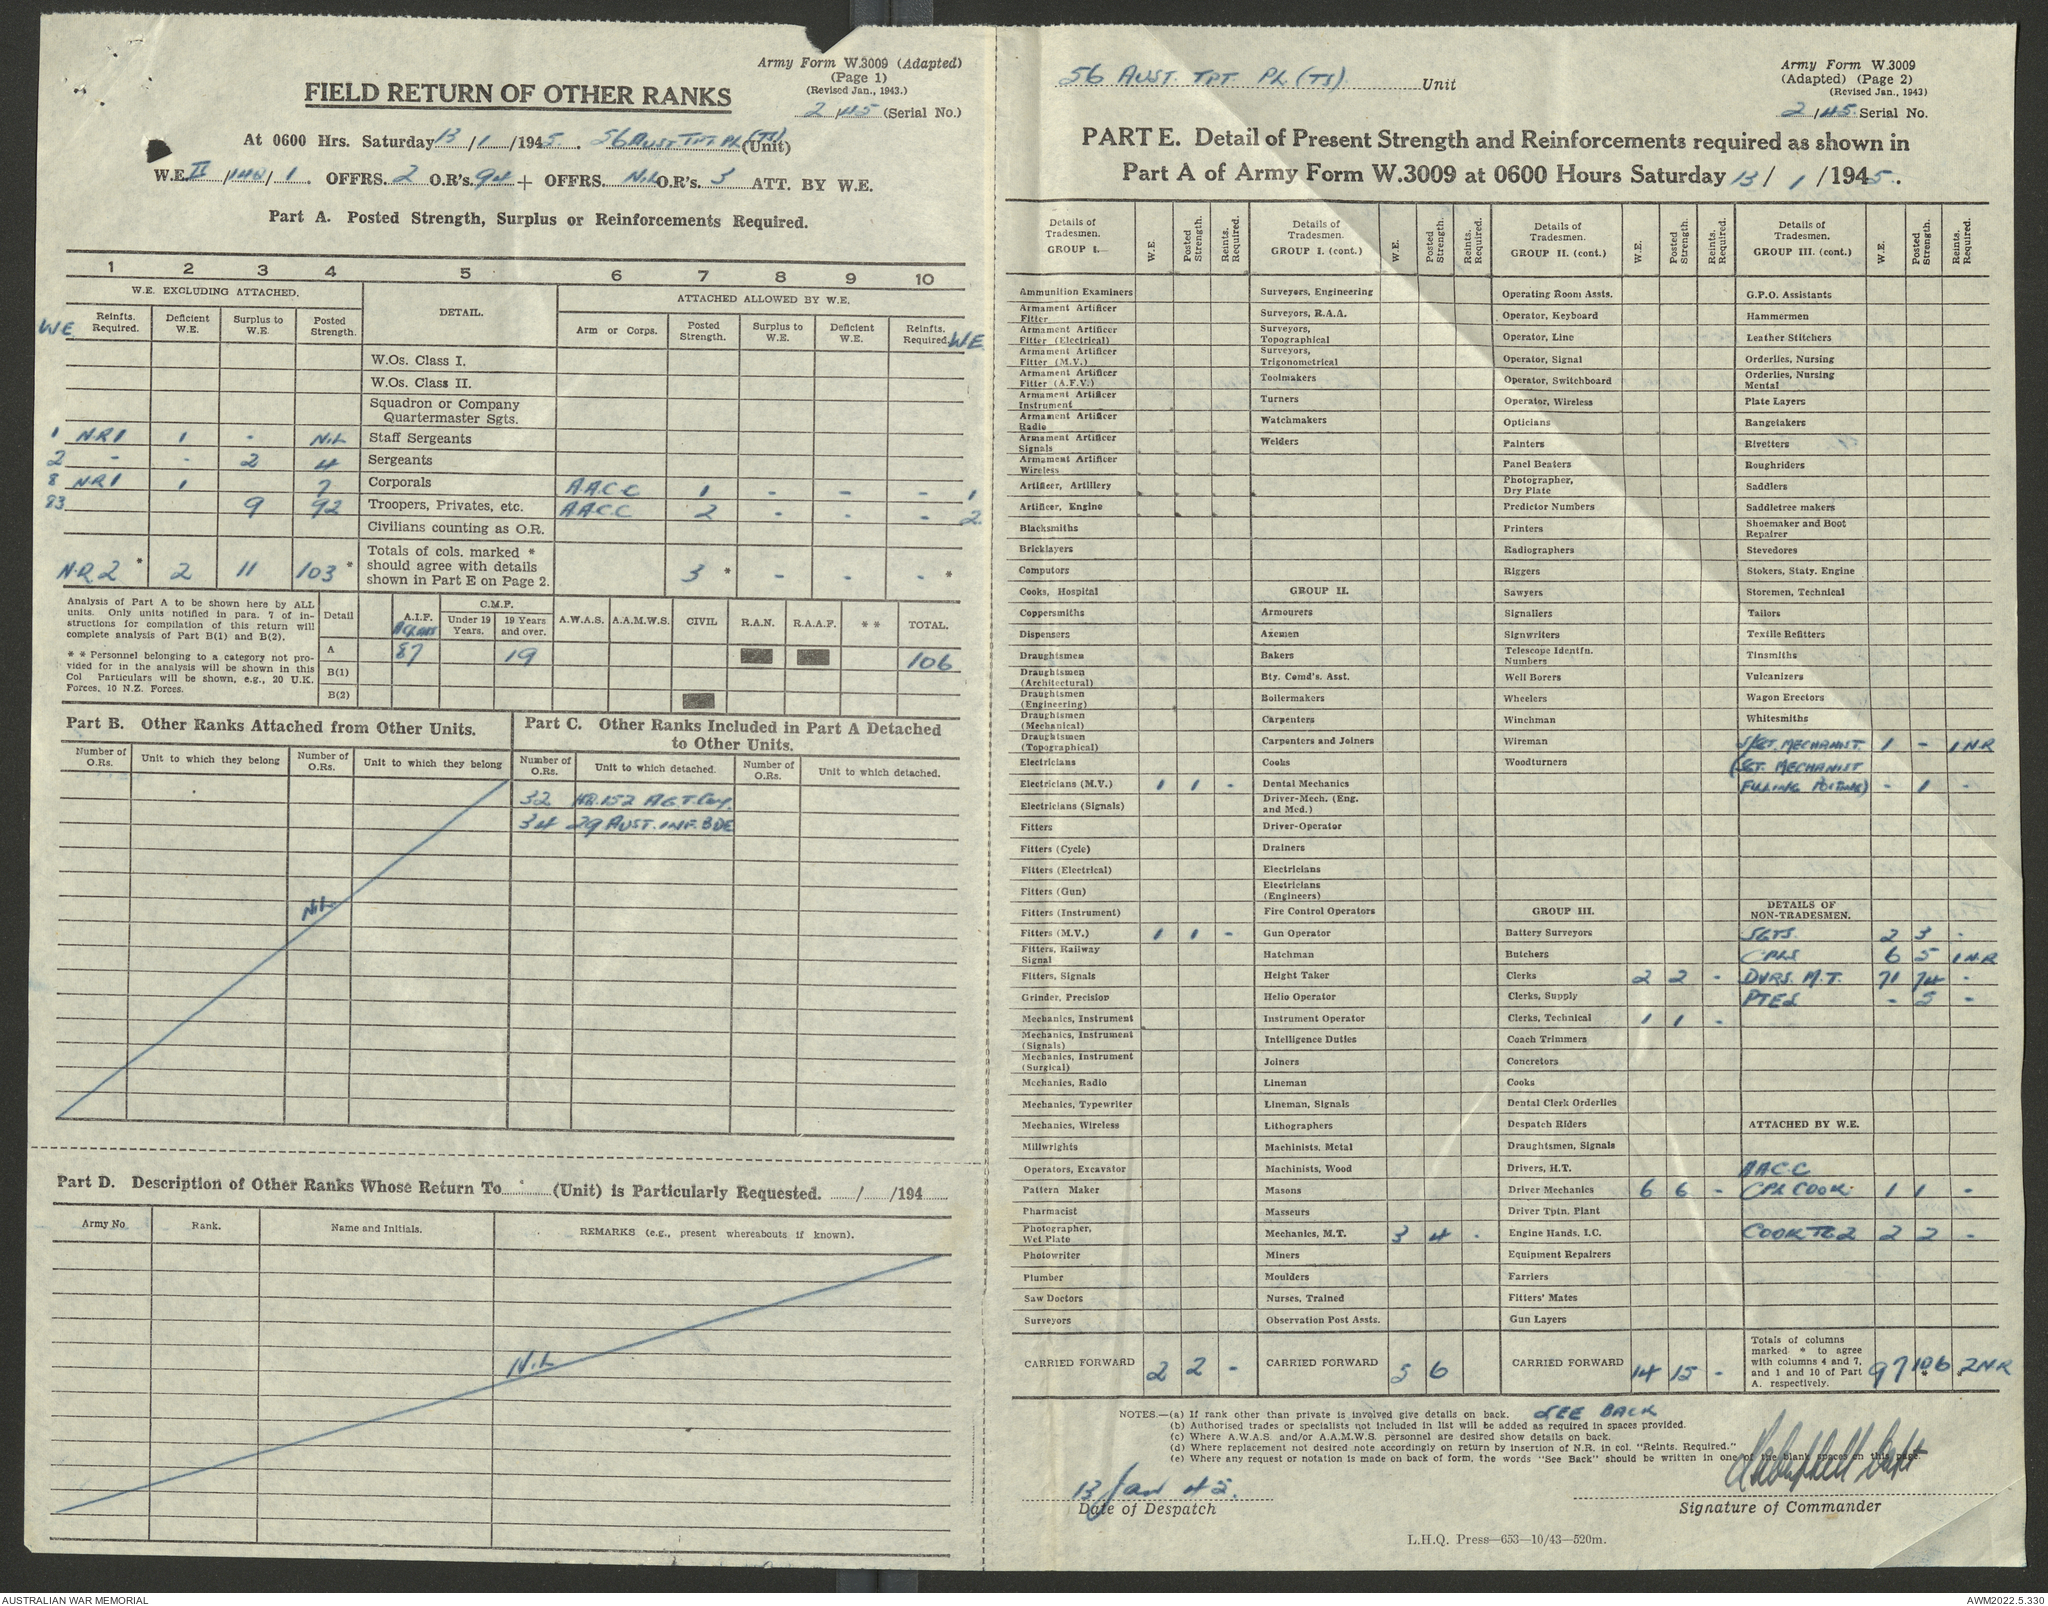 Army Form W.3009 (Adapted)
(Page 1)
(Revised Jan., 1943.)
2/45 (Serial No.)
FIELD RETURN OF OTHER RANKS
At 0600 Hrs. Saturday 13/1/1945. 56 AUST. TPT. PL (TS) (Unit)
W.E. II/140/1. OFFRS. 2 O.R's. 94 + OFFRS. NIL O.R's. 3 ATT. BY W.E.
Part A. Posted Strength, Surplus or Reinforcements Required.
1 2 3 4 5 6 7 8 9 10
W.E. EXCLUDING ATTACHED. DETAIL. ATTACHED ALLOWED BY W.E.
WE Reinfts. Required. Deficient W.E. Surplus to W.E. Posted Strength. Arm or Corps. Posted Strength. Surplus to W.E. Deficient W.E. Reinfts. Required. WE
W.Os. Class I.
W.Os. Class II.
Squadron or Company Quartermaster Sgts.
1 N.R 1 1 - NIL Staff Sergeants
2 - - 2 4 Sergeants
8 N.R 1 1 7 Corporals A.A.C.C 1 - - - 1
83 9 92 Troopers, Privates, etc. A.A.C.C 2 - - - 2
Civilians counting as O.R.
N.R 2 * 2 11 103 * Totals of cols. marked * should agree with details shown in Part E on Page 2. 3 * - - - *
Analysis of Part A to be shown here by ALL units. Only units notified in para. 7 of instructions for compilation of this return will complete analysis of Part B(1) and B(2).
* * Personnel belonging to a category not provided for in the analysis will be shown in this Col Particulars will be shown, e.g., 20 U.K. Forces, 10 N.Z. Forces.
Detail A.I.F. C.M.F. Under 19 Years. 19 Years and over. A.W.A.S. A.A.M.W.S. CIVIL R.A.N. R.A.A.F. * * TOTAL.
A 87 19 106
B(1)
B(2)
Part B. Other Ranks Attached from Other Units.
Number of O.Rs. Unit to which they belong Number of O.Rs. Unit to which they belong
NIL
Part C. Other Ranks Included in Part A Detached to Other Units.
Number of O.Rs. Unit to which detached. Number of O.Rs. Unit to which detached.
32 HQ.152 A.G.T. Coy.
34 29 AUST. INF. BDE
Part D. Description of Other Ranks Whose Return To (Unit) is Particularly Requested. / /194
Army No Rank. Name and Initials. REMARKS (e.g., present whereabouts if known).
NIL
56 AUST. TPT. PL (TS) Unit
Army Form W.3009
(Adapted) (Page 2)
(Revised Jan., 1943)
2/45 Serial No.
PART E. Detail of Present Strength and Reinforcements required as shown in
Part A of Army Form W.3009 at 0600 Hours Saturday 13/1/1945.
Details of Tradesmen. GROUP I.— W.E. Posted Strength. Reints. Required.
Ammunition Examiners
Armament Artificer Fitter
Armament Artificer Fitter (Electrical)
Armament Artificer Fitter (M.V.)
Armament Artificer Fitter (A.F.V.)
Armament Artificer Instrument
Armament Artificer Radio
Armament Artificer Signals
Armament Artificer Wireless
Artificer, Artillery
Artificer, Engine
Blacksmiths
Bricklayers
Computors
Cooks, Hospital
Coppersmiths
Dispensers
Draughtsmen
Draughtsmen (Architectural)
Draughtsmen (Engineering)
Draughtsmen (Mechanical)
Draughtsmen (Topographical)
Electricians
Electricians (M.V.) 1 1 -
Electricians (Signals)
Fitters
Fitters (Cycle)
Fitters (Electrical)
Fitters (Gun)
Fitters (Instrument)
Fitters (M.V.) 1 1 -
Fitters, Railway Signal
Fitters, Signals
Grinder, Precision
Mechanics, Instrument
Mechanics, Instrument (Signals)
Mechanics, Instrument (Surgical)
Mechanics, Radio
Mechanics, Typewriter
Mechanics, Wireless
Millwrights
Operators, Excavator
Pattern Maker
Pharmacist
Photographer, Wet Plate
Photowriter
Plumber
Saw Doctors
Surveyors
CARRIED FORWARD 2 2 -
Details of Tradesmen. GROUP I. (cont.) W.E. Posted Strength. Reints. Required.
Surveyors, Engineering
Surveyors, R.A.A.
Surveyors, Topographical
Surveyors, Trigonometrical
Toolmakers
Turners
Watchmakers
Welders
GROUP II.
Armourers
Axemen
Bakers
Bty. Comd's. Asst.
Boilermakers
Carpenters
Carpenters and Joiners
Cooks
Dental Mechanics
Driver-Mech. (Eng. and Med.)
Driver-Operator
Drainers
Electricians
Electricians (Engineers)
Fire Control Operators
Gun Operator
Hatchman
Height Taker
Helio Operator
Instrument Operator
Intelligence Duties
Joiners
Lineman
Lineman, Signals
Lithographers
Machinists, Metal
Machinists, Wood
Masons
Masseurs
Mechanics, M.T. 3 4 -
Miners
Moulders
Nurses, Trained
Observation Post Assts.
CARRIED FORWARD 5 6
Details of Tradesmen. GROUP II. (cont.) W.E. Posted Strength. Reints. Required.
Operating Room Assts.
Operator, Keyboard
Operator, Line
Operator, Signal
Operator, Switchboard
Operator, Wireless
Opticians
Painters
Panel Beaters
Photographer, Dry Plate
Predictor Numbers
Printers
Radiographers
Riggers
Sawyers
Signallers
Signwriters
Telescope Identfn. Numbers
Well Borers
Wheelers
Winchman
Wireman
Woodturners
GROUP III.
Battery Surveyors
Butchers
Clerks 2 2 -
Clerks, Supply
Clerks, Technical 1 1 -
Coach Trimmers
Concretors
Cooks
Dental Clerk Orderlies
Despatch Riders
Draughtsmen, Signals
Drivers, H.T.
Driver Mechanics 6 6 -
Driver Tptn. Plant
Engine Hands, I.C.
Equipment Repairers
Farriers
Fitters' Mates
Gun Layers
CARRIED FORWARD 14 15 -
Details of Tradesmen. GROUP III. (cont.) W.E. Posted Strength. Reints. Required.
G.P.O. Assistants
Hammermen
Leather Stitchers
Orderlies, Nursing
Orderlies, Nursing Mental
Plate Layers
Rangetakers
Rivetters
Roughriders
Saddlers
Saddletree makers
Shoemaker and Boot Repairer
Stevedores
Stokers, Staty. Engine
Storemen, Technical
Tailors
Textile Refitters
Tinsmiths
Vulcanizers
Wagon Erectors
Whitesmiths
S/SGT. MECHANIST. 1 - 1 N.R
(SGT. MECHANIST
FILLING POSTING) - 1 -
DETAILS OF NON-TRADESMEN.
SGTS. 2 3 -
CPLS 6 5 1 N.R
DVRS. M.T. 71 74 -
PTES - 5 -
ATTACHED BY W.E.
AAC.C
CPL COOK. 1 1 -
COOK TG 2 2 2 -
Totals of columns marked * to agree with columns 4 and 7, and 1 and 10 of Part A. respectively. 97 106 * * 2 N.R
NOTES.—(a) If rank other than private is involved give details on back. SEE BACK
(b) Authorised trades or specialists not included in list will be added as required in spaces provided.
(c) Where A.W.A.S. and/or A.A.M.W.S. personnel are desired show details on back.
(d) Where replacement not desired note accordingly on return by insertion of N.R. in col. "Reints. Required."
(e) Where any request or notation is made on back of form, the words "See Back" should be written in one of the blank spaces on this page.
13 Jan 45.
Date of Despatch
Campbell Capt
Signature of Commander
L.H.Q. Press—653—10/43—520m.
AUSTRALIAN WAR MEMORIAL
AWM2022.5.330